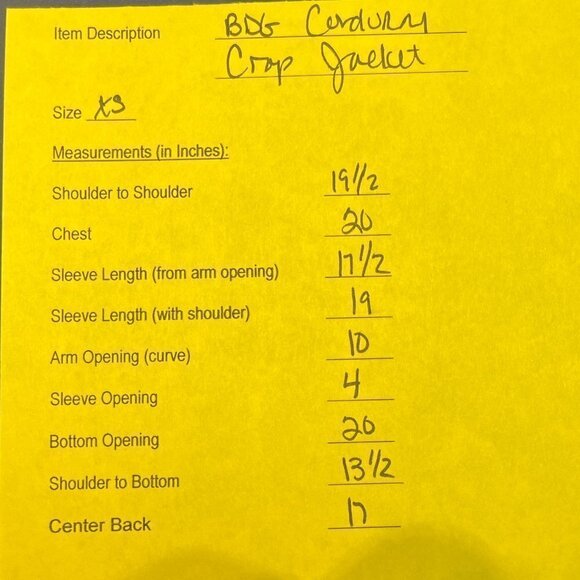 Item Description BDG Corduroy
Crop Jacket
Size XS
Measurements (in Inches):
Shoulder to Shoulder 19 1/2
Chest 20
Sleeve Length (from arm opening) 17 1/2
Sleeve Length (with shoulder) 19
Arm Opening (curve) 10
Sleeve Opening 4
Bottom Opening 20
Shoulder to Bottom 13 1/2
Center Back 17